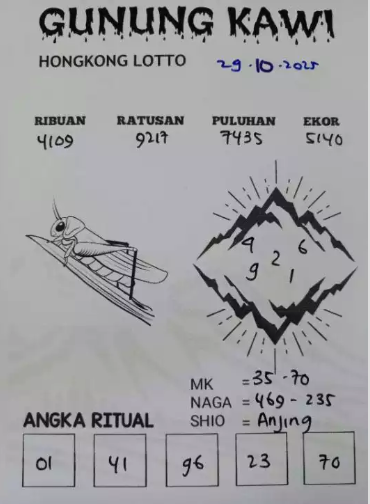 GUNUNG KAWI
HONGKONG LOTTO 29.10.2025
RIBUAN RATUSAN PULUHAN EKOR
4109 9217 7435 5140
4 6
2
9 1
MK = 35 - 70
NAGA = 469 - 235
SHIO = Anjing
ANGKA RITUAL
01 41 96 23 70